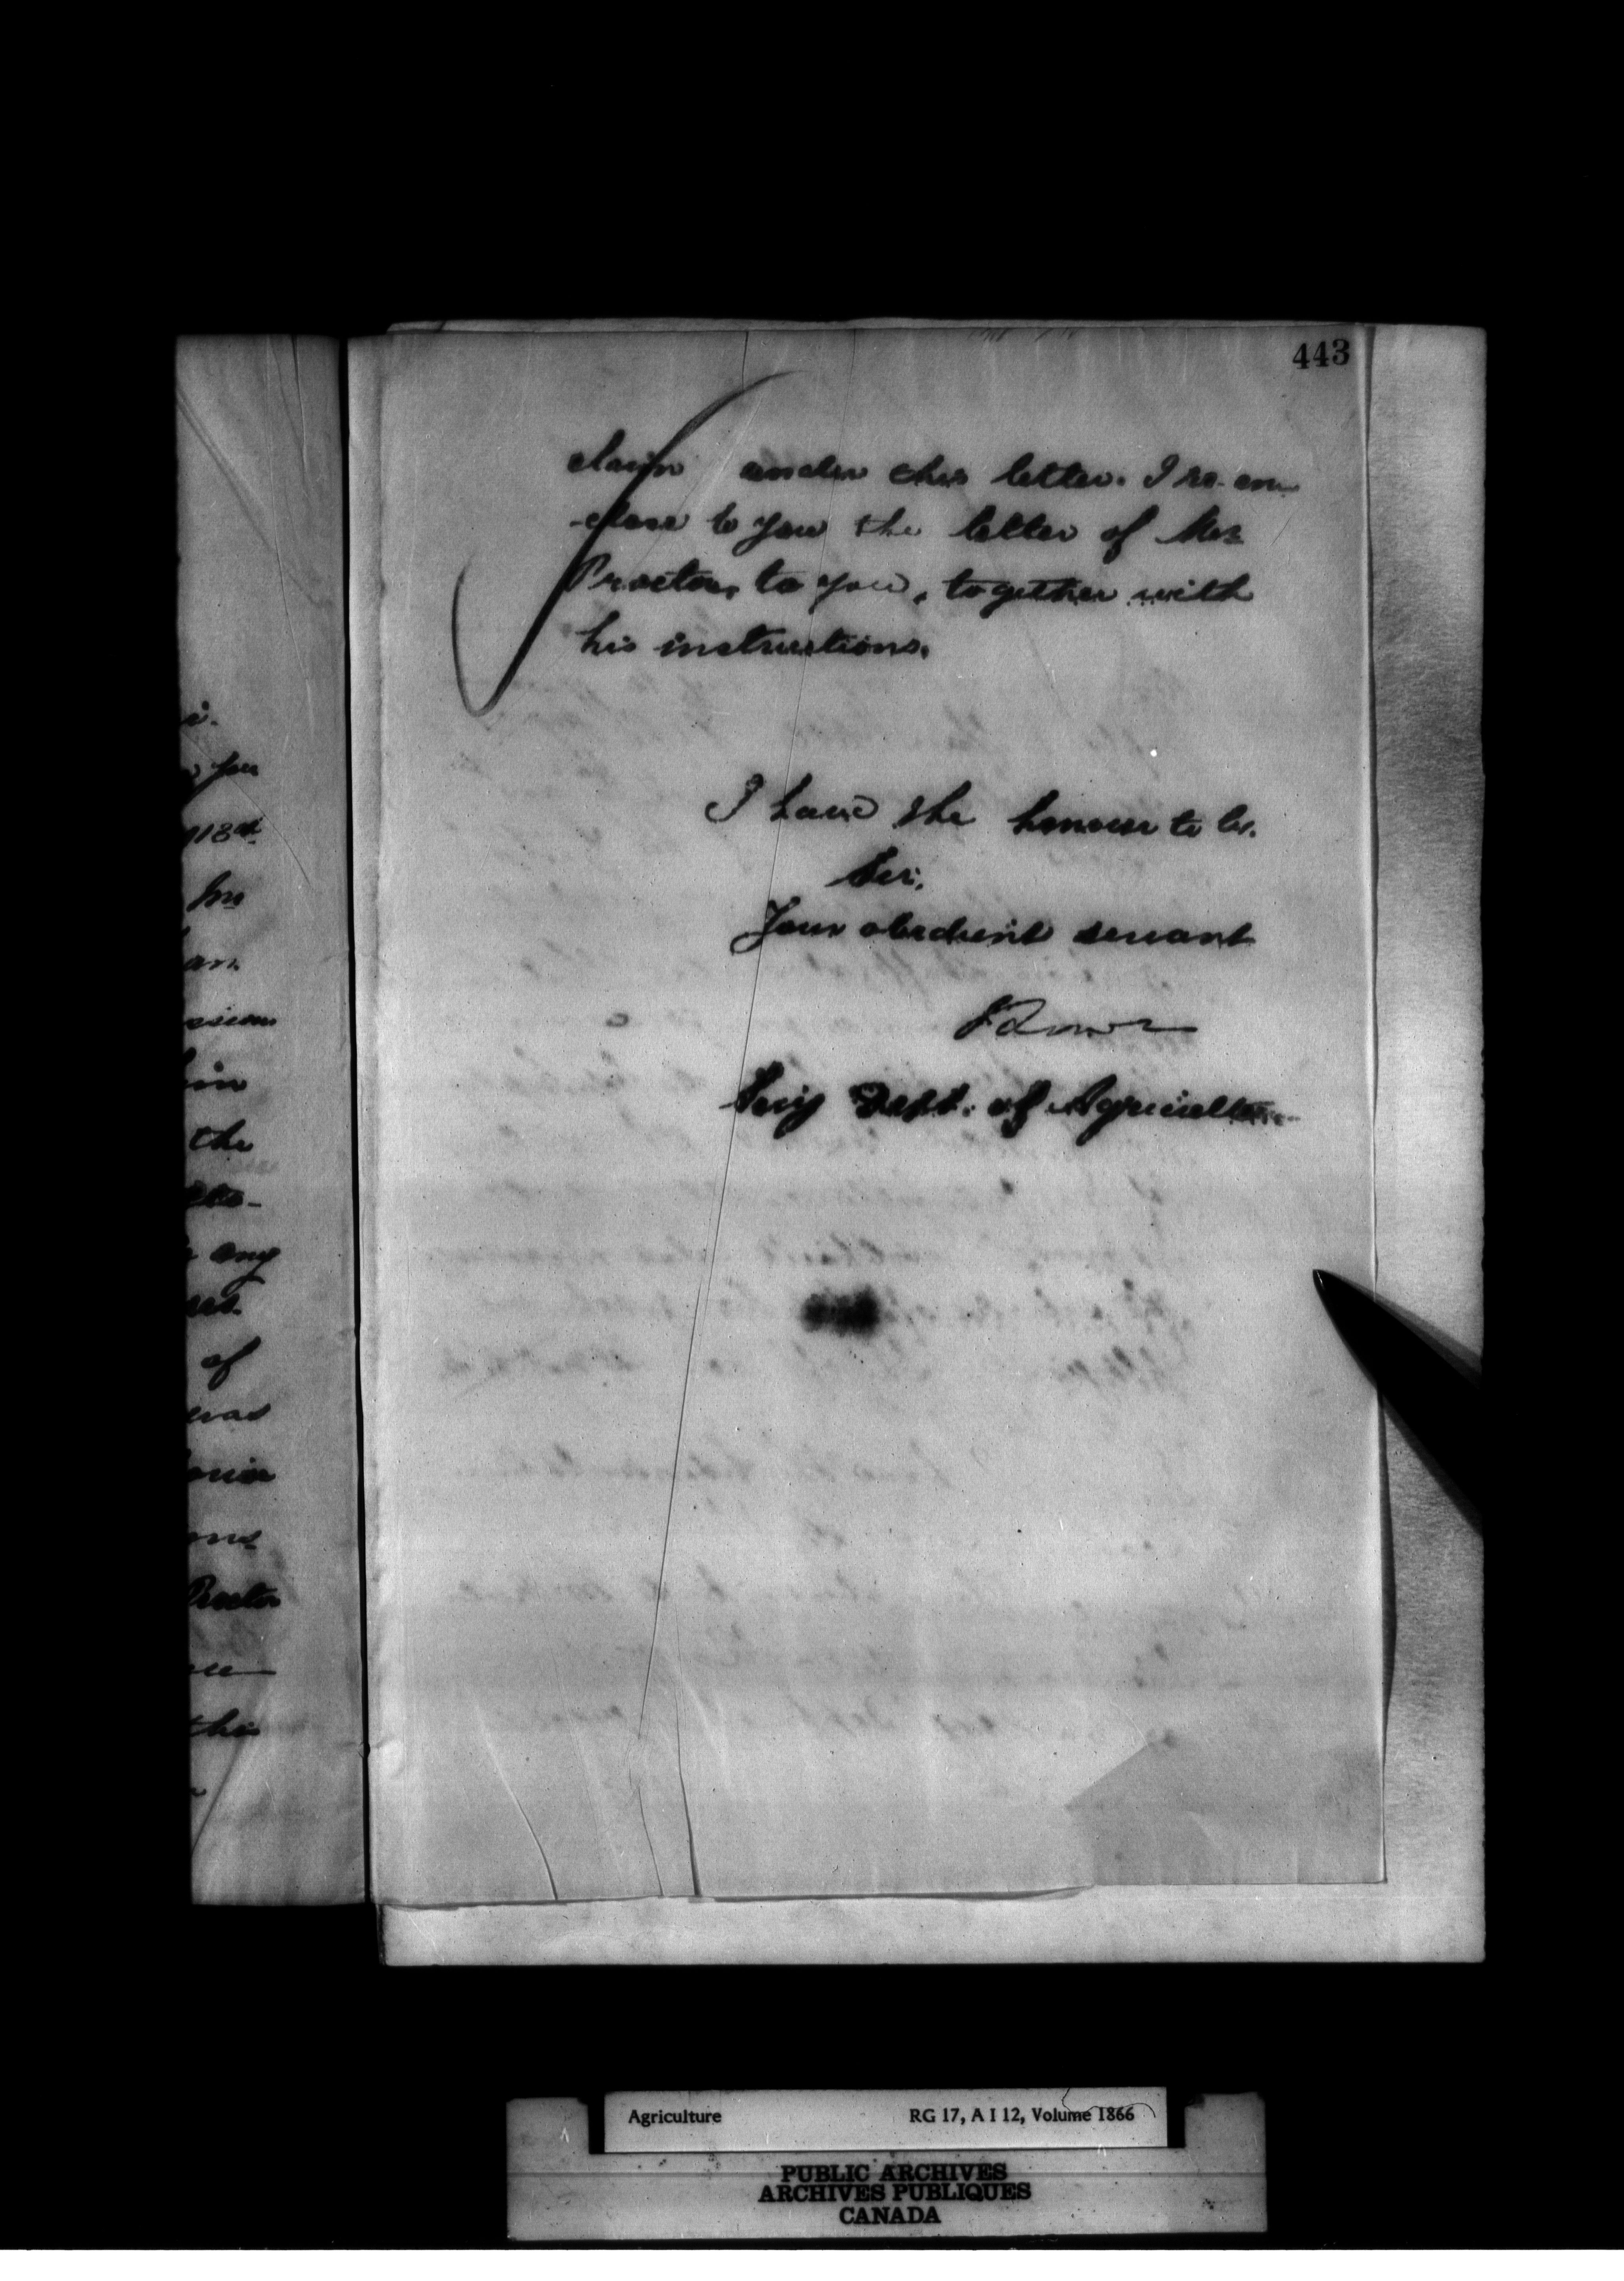 443
claim under this letter. I re-en
-close to you the letter of Mr
Proctor, to you, together with
his instructions.
I have the honour to be.
Sir,
Your obedient servant
Secy Dept. of Agriculture
you
18th
an
in
the
any
of
Proctor
this
Agriculture RG 17, A I 12, Volume 1866
PUBLIC ARCHIVES
ARCHIVES PUBLIQUES
CANADA